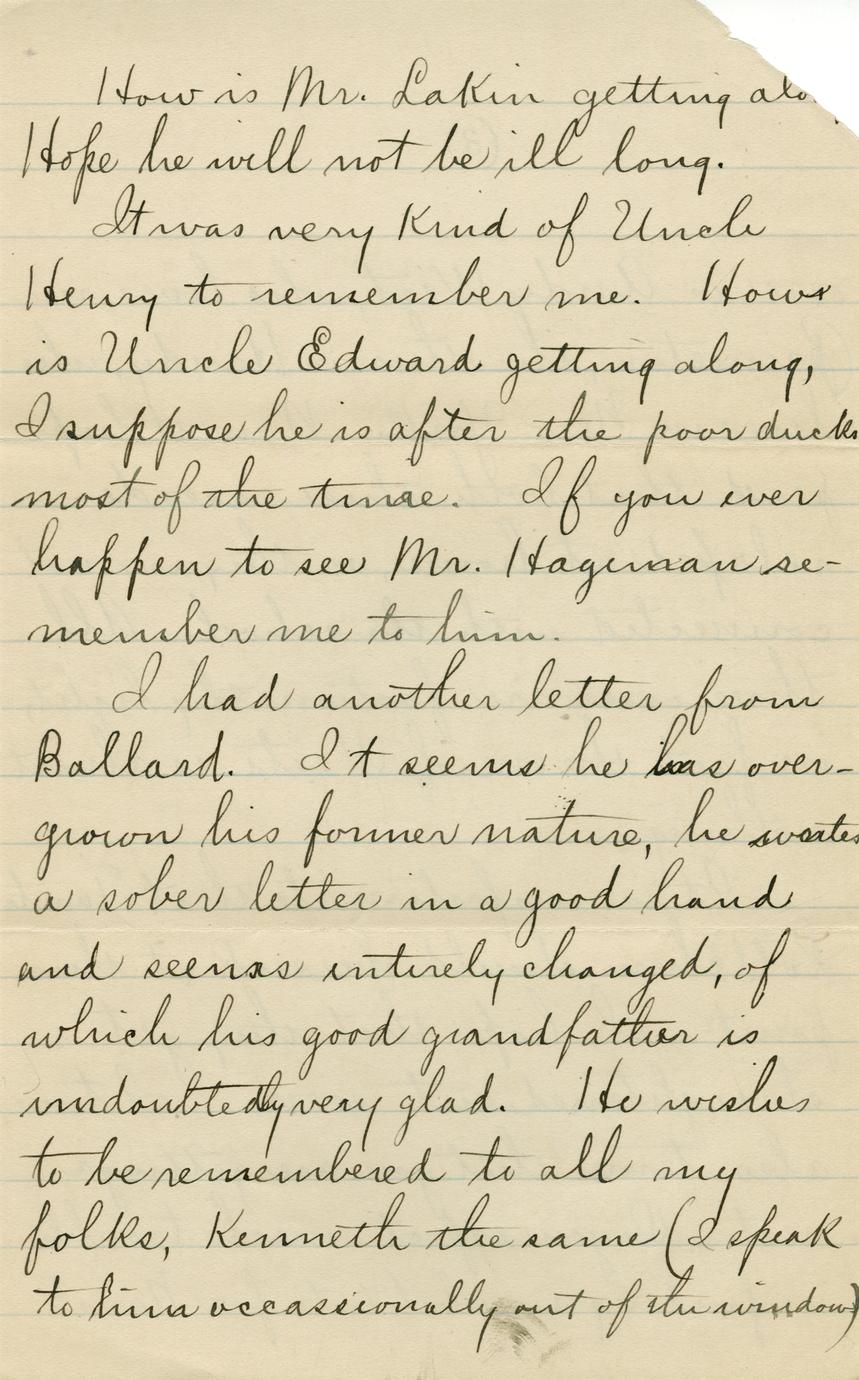 How is Mr. Lakin getting alo
Hope he will not be ill long.
It was very kind of Uncle
Henry to remember me. How
is Uncle Edward getting along,
I suppose he is after the poor ducks
most of the time. If you ever
happen to see Mr. Hageman re-
member me to him.
I had another letter from
Ballard. It seems he has over-
grown his former nature, he writes
a sober letter in a good hand
and seems entirely changed, of
which his good grandfather is
undoubtedly very glad. He wishes
to be remembered to all my
folks, Kenneth the same (I speak
to him occassionally out of the window)